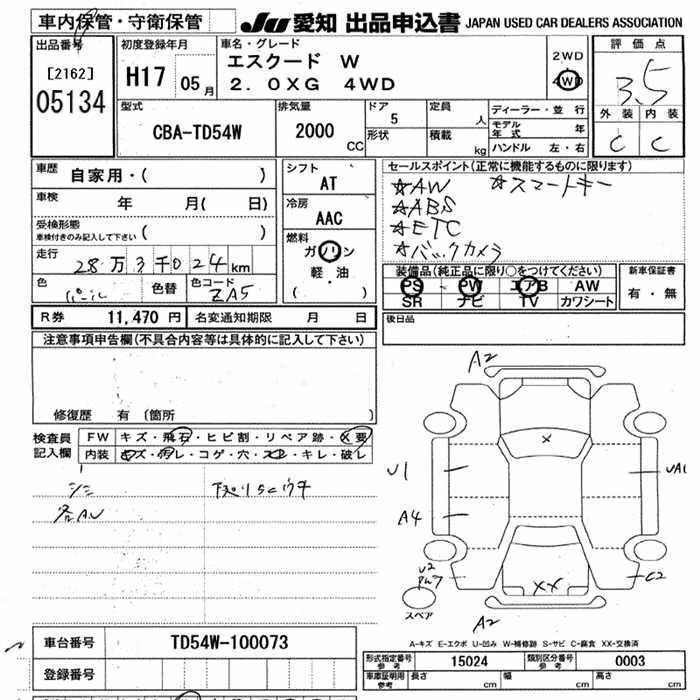 車内保管・守衛保管
JU 愛知 出品申込書 JAPAN USED CAR DEALERS ASSOCIATION
出品番号
[2162]
05134
初度登録年月
H17 05月
車名・グレード
エスクード W
2.0XG 4WD
2WD
4WD
評価点
3.5
外装 内装
C C
型式
CBA-TD54W
排気量
2000 CC
ドア
5
形状
定員
人
積載
kg
ディーラー・並行
モデル年式 年
ハンドル 左・右
車歴
自家用・( )
車検
年 月( 日)
受検形態
車検付きのみ記入して下さい ( )
走行
28万3千024km
色
パール
色替
色コード
ZA5
シフト
AT
冷房
AAC
燃料
ガソリン
軽・油
( )
セールスポイント(正常に機能するものに限ります)
☆AW ☆スマートキー
☆ABS
☆ETC
☆バックカメラ
装備品(純正品に限り○をつけてください)
PS PW エアB AW
SR ナビ TV カワシート
新車保証書
有・無
R券 11,470 円
名変通知期限 月 日
後日品
注意事項申告欄(不具合内容等は具体的に記入して下さい)
修復歴 有 (箇所 )
検査員記入欄
FW キズ・飛石・ヒビ割・リペア跡・X要
内装 キズ・汚レ・コゲ・穴・スレ・キレ・破レ
シミ
各AU
A2
X
U1
UA1
A4
U2
C2
XX
スペア
A2
車台番号
TD54W-100073
登録番号
A-キズ E-エクボ U-凹み W-補修跡 S-サビ C-腐食 XX-交換済
形式指定番号 参考
15024
類別区分番号 参考
0003
車庫証明用 参考
長さ cm
幅 cm
高さ cm